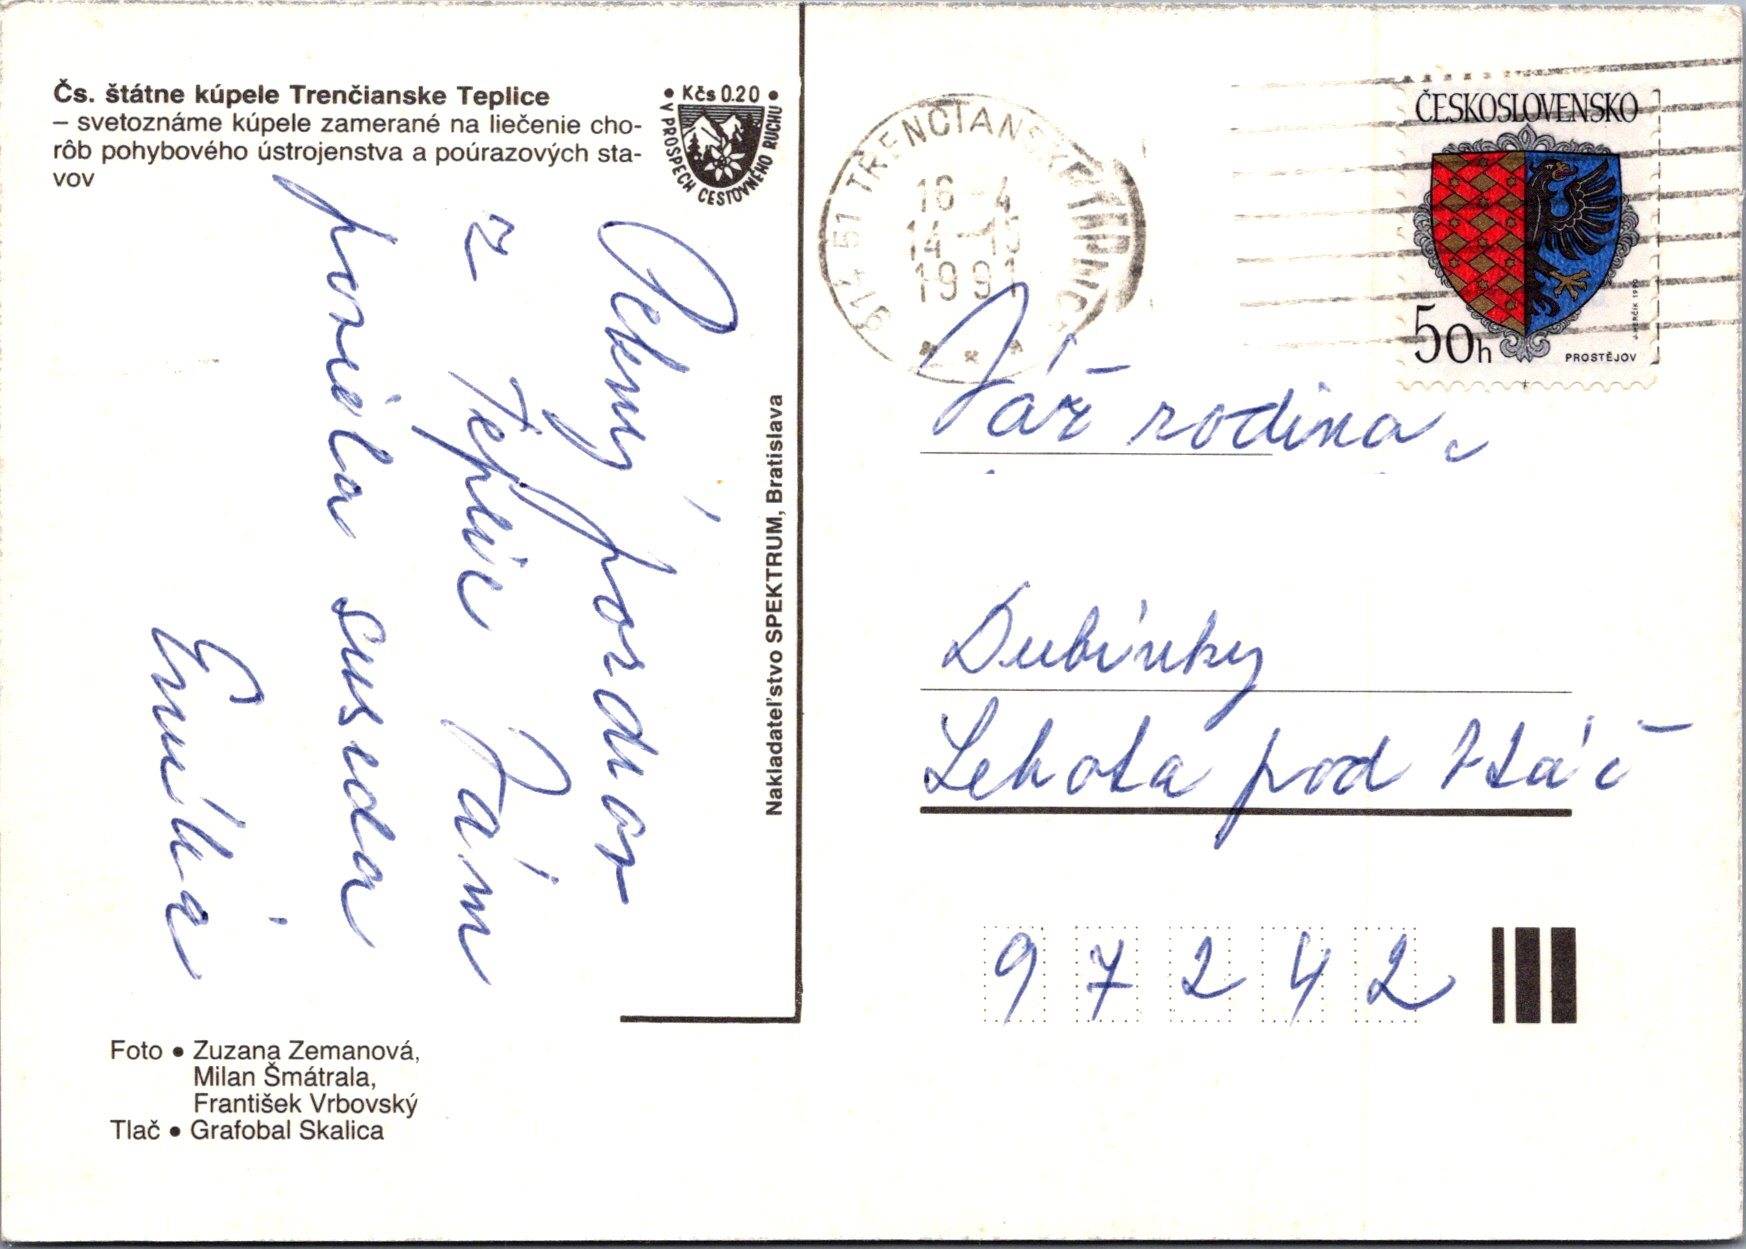 Čs. štátne kúpele Trenčianske Teplice
– svetoznáme kúpele zamerané na liečenie cho-
rôb pohybového ústrojenstva a poúrazových sta-
vov
• Kčs 0.20 •
V PROSPECH CESTOVNÉHO RUCHU
Pekný pozdrav
z Teplíc Vám
posiela suseda
Emília
Nakladateľstvo SPEKTRUM, Bratislava
Foto • Zuzana Zemanová,
Milan Šmátrala,
František Vrbovský
Tlač • Grafobal Skalica
914 51 TRENČIANSKE TEPLICE
16 -4
1991
ČESKOSLOVENSKO
50h
PROSTĚJOV
Váž rodina
Dubínky
Lehota pod Vtáč
97242